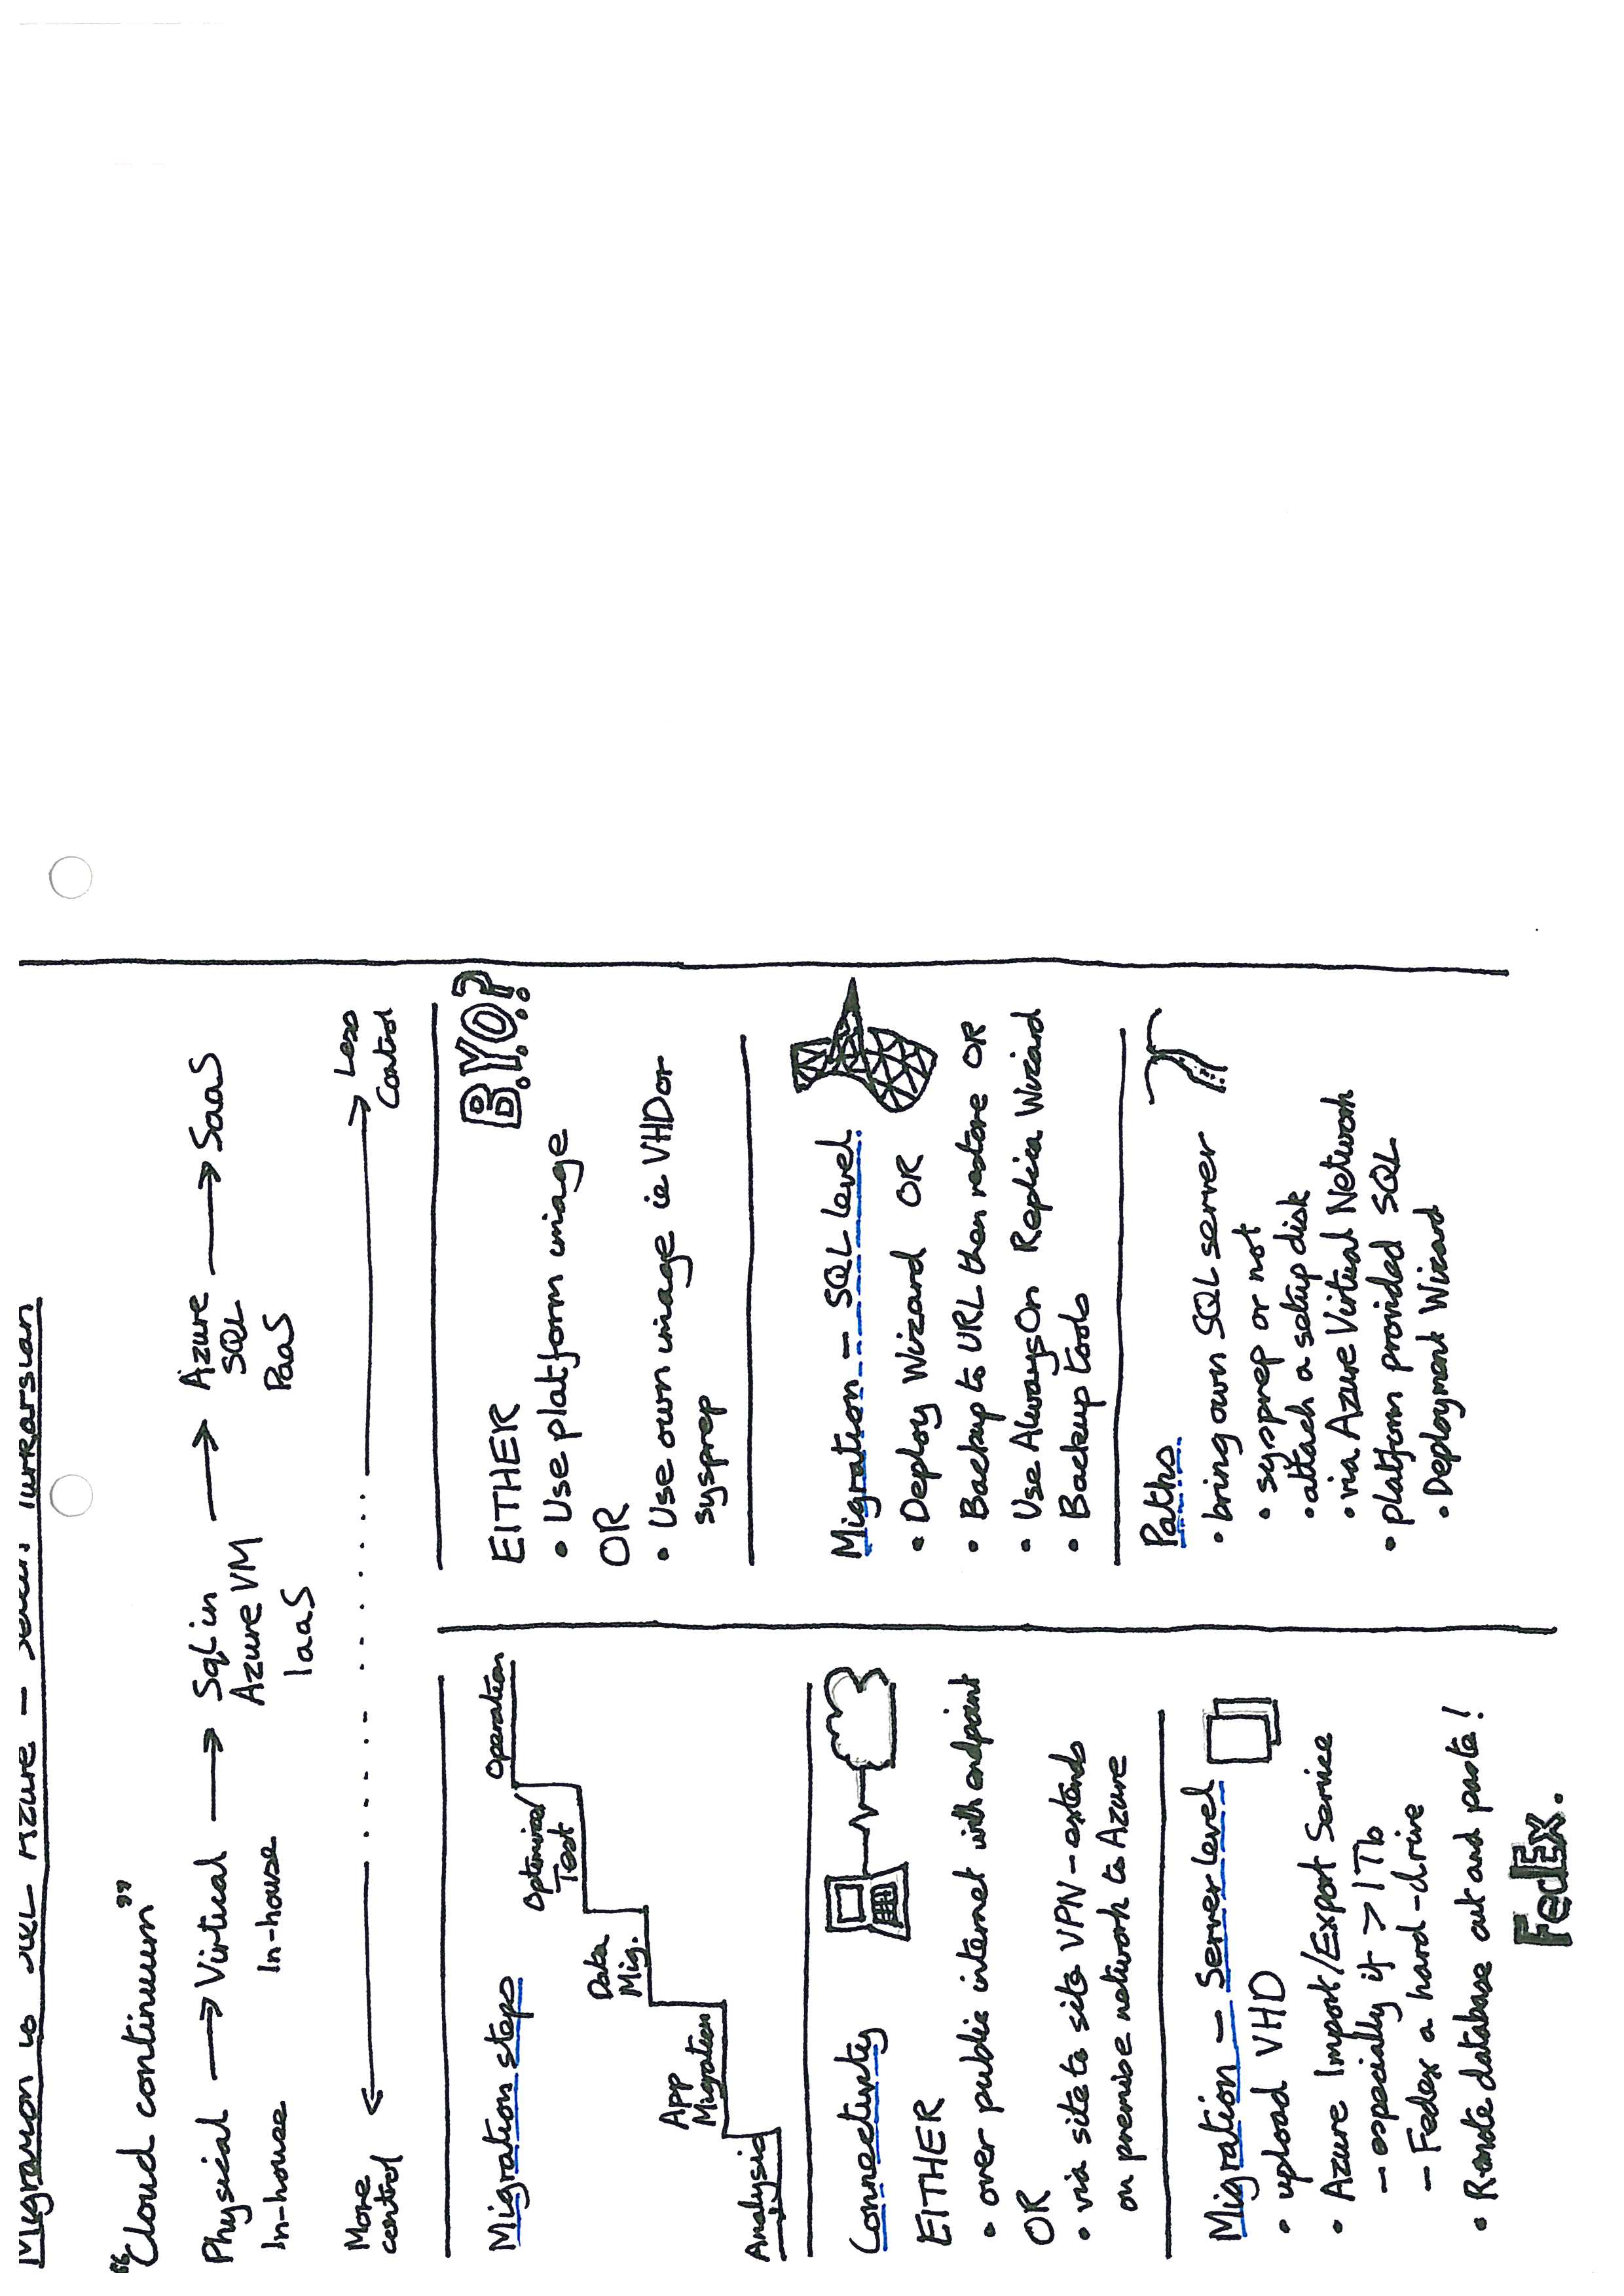 Migration to SQL Azure – Turkarslan
"Cloud continuum"
Physical → Virtical → Sql in → Azure → SaaS
Azure VM SQL
In-house In-house IaaS PaaS
More Less
control Control
Migration steps
Operation
Optimized/
Test
Data
Mig.
App
Migration
Analysis
Connectivity
EITHER
• over public internet with endpoint
OR
• via site to site VPN – extends
on premise network to Azure
Migration – Server level
• upload VHD
• Azure Import/Export Service
– especially if > 1Tb
– Fedex a hard-drive
• Remote database cut and paste!
FedEx.
B.Y.O.?
EITHER
• Use platform image
OR
• Use own image ie VHD or
sysprep
Migration – SQL level
• Deploy Wizard OR
• Backup to URL then restore OR
• Use AlwaysOn Replica Wizard
• Backup tools
Paths
• bring own SQL server
• sysprep or not
• attach a setup disk
• via Azure Virtual Network
• platform provided SQL
• Deployment Wizard